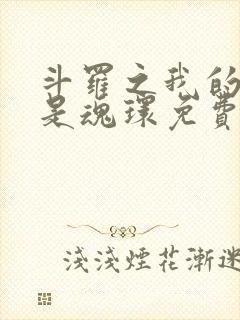 斗羅之我的
是魂環免費
淺淺煙花漸迷